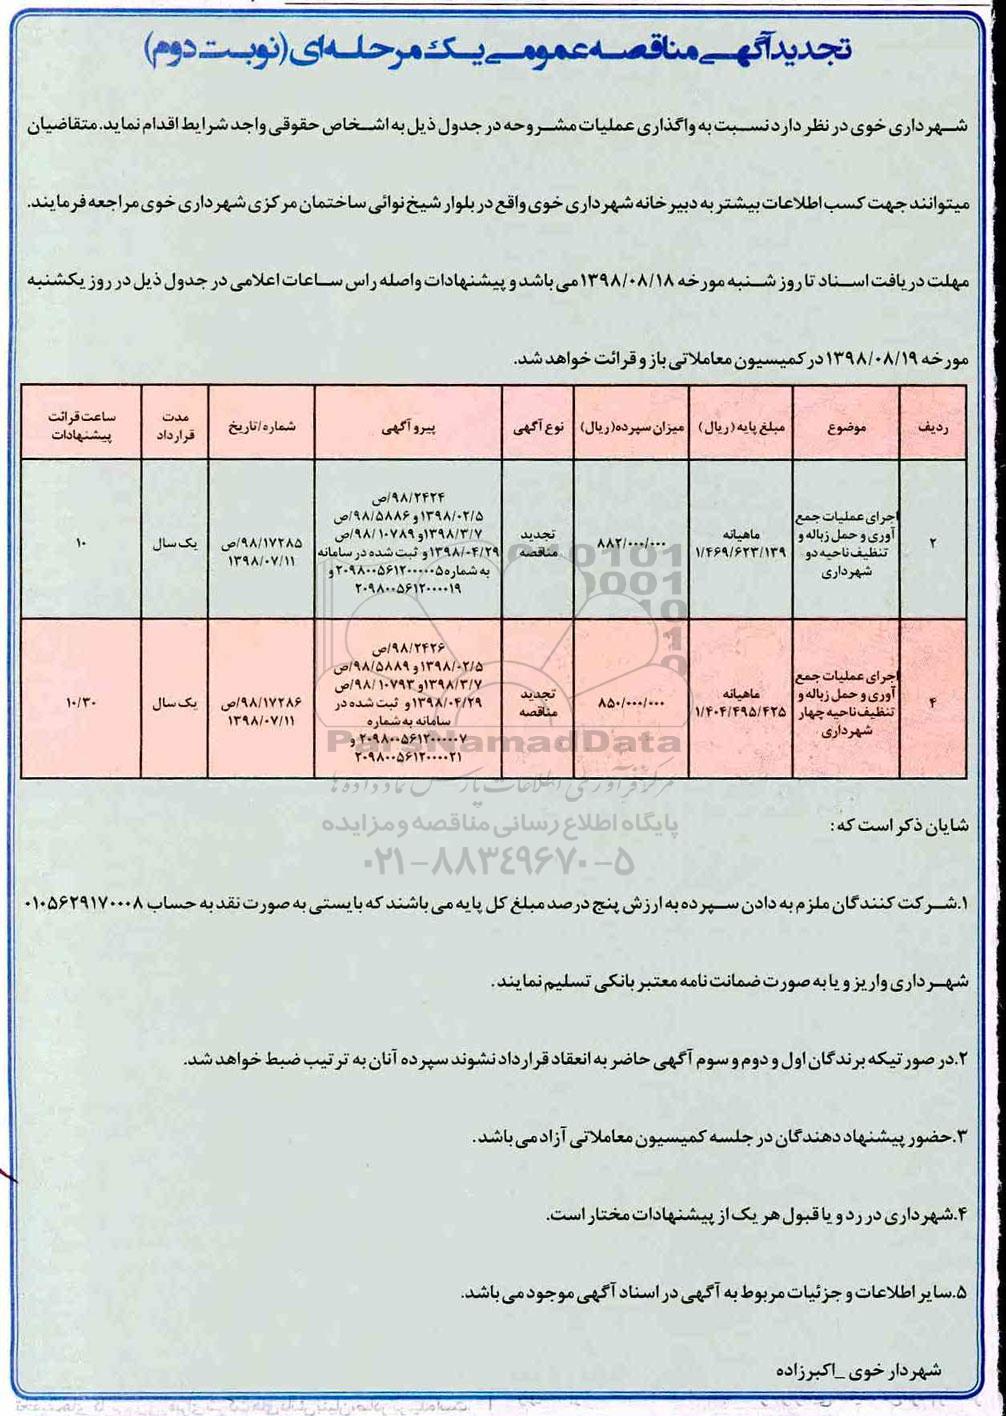 تجدید آگهی مناقصه عمومی یک مرحله‌ای (نوبت دوم)
شهرداری خوی در نظر دارد نسبت به واگذاری عملیات مشروحه در جدول ذیل به اشخاص حقوقی واجد شرایط اقدام نماید. متقاضیان
میتوانند جهت کسب اطلاعات بیشتر به دبیرخانه شهرداری خوی واقع در بلوار شیخ نوائی ساختمان مرکزی شهرداری خوی مراجعه فرمایند.
مهلت دریافت اسناد تا روز شنبه مورخه ۱۳۹۸/۰۸/۱۸ می باشد و پیشنهادات واصله راس ساعات اعلامی در جدول ذیل در روز یکشنبه
مورخه ۱۳۹۸/۰۸/۱۹ در کمیسیون معاملاتی باز و قرائت خواهد شد.
ردیف
موضوع
مبلغ پایه (ریال)
میزان سپرده (ریال)
نوع آگهی
پیرو آگهی
شماره/تاریخ
مدت
قرارداد
ساعت قرائت
پیشنهادات
۲
اجرای عملیات جمع
آوری و حمل زباله و
تنظیف ناحیه دو
شهرداری
ماهیانه
۱/۴۶۹/۶۲۳/۱۳۹
۸۸۲/۰۰۰/۰۰۰
تجدید
مناقصه
۹۸/۲۴۲۴/ص
۱۳۹۸/۰۲/۵ و ۹۸/۵۸۸۶/ص
۱۳۹۸/۳/۷ و ۹۸/۱۰۷۸۹/ص
۱۳۹۸/۰۴/۲۹ و ثبت شده در سامانه
به شماره ۲۰۹۸۰۰۵۶۱۲۰۰۰۰۰۵ و
۲۰۹۸۰۰۵۶۱۲۰۰۰۰۱۹
۹۸/۱۷۲۸۵/ص
۱۳۹۸/۰۷/۱۱
یک سال
۱۰
۴
اجرای عملیات جمع
آوری و حمل زباله و
تنظیف ناحیه چهار
شهرداری
ماهیانه
۱/۴۰۴/۴۹۵/۴۲۵
۸۵۰/۰۰۰/۰۰۰
تجدید
مناقصه
۹۸/۲۴۲۶/ص
۱۳۹۸/۰۲/۵ و ۹۸/۵۸۸۹/ص
۱۳۹۸/۳/۷ و ۹۸/۱۰۷۹۳/ص
۱۳۹۸/۰۴/۲۹ و ثبت شده در
سامانه به شماره
۲۰۹۸۰۰۵۶۱۲۰۰۰۰۰۷ و
۲۰۹۸۰۰۵۶۱۲۰۰۰۰۲۱
۹۸/۱۷۲۸۶/ص
۱۳۹۸/۰۷/۱۱
یک سال
۱۰/۳۰
ParsNamadData
مرکز فرآوری اطلاعات پارس نماد داده ها
پایگاه اطلاع رسانی مناقصه و مزایده
۰۲۱-۸۸۳۴۹۶۷۰-۵
شایان ذکر است که:
۱.شرکت کنندگان ملزم به دادن سپرده به ارزش پنج درصد مبلغ کل پایه می باشند که بایستی به صورت نقد به حساب ۰۱۰۵۶۲۹۱۷۰۰۰۸
شهرداری واریز و یا به صورت ضمانت نامه معتبر بانکی تسلیم نمایند.
۲.در صورتیکه برندگان اول و دوم و سوم آگهی حاضر به انعقاد قرارداد نشوند سپرده آنان به ترتیب ضبط خواهد شد.
۳.حضور پیشنهاد دهندگان در جلسه کمیسیون معاملاتی آزاد می باشد.
۴.شهرداری در رد و یا قبول هر یک از پیشنهادات مختار است.
۵.سایر اطلاعات و جزئیات مربوط به آگهی در اسناد آگهی موجود می باشد.
شهردار خوی _ اکبرزاده